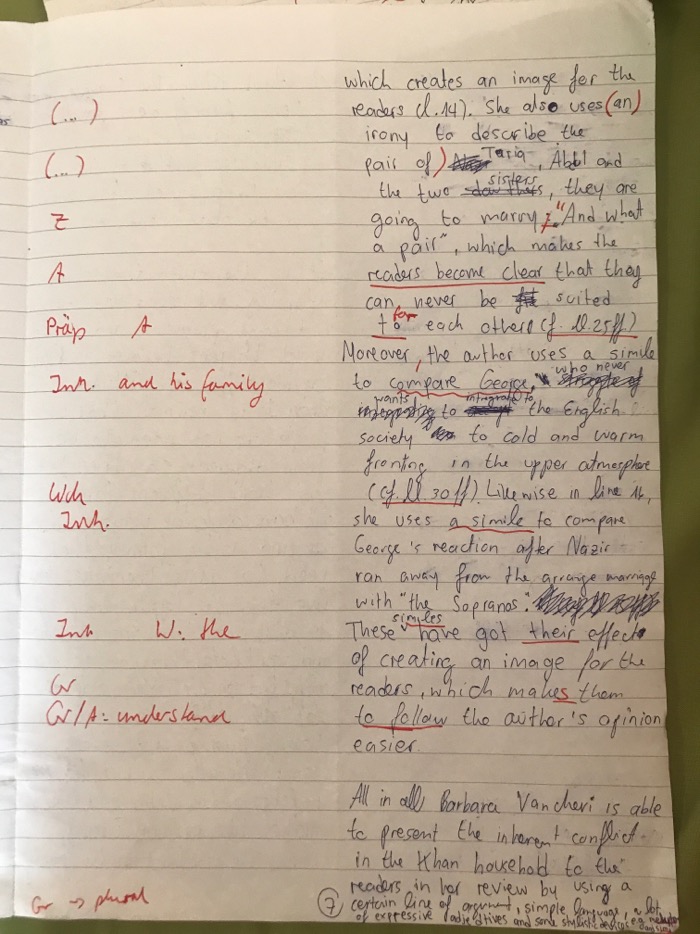 which creates an image for the
(...) readers (l.14). She also uses (an)
irony to describe the
(...) pair of) Tariq, Abdul and
the two sisters, they are
Z going to marry: "And what
a pair", which makes the
A readers become clear that they
can never be suited
Präp A to for each other (cf. ll.25ff.)
Moreover, the author uses a simile
Inh. and his family to compare George, who never
wants to integrate to the English
society to cold and warm
fronting in the upper atmosphere
Wdh (cf. ll.30ff.) Likewise in line 16,
Inh. she uses a simile to compare
George's reaction after Nazir
ran away from the arrange marriage
with "the Sopranos".
Inh W: the These similes have got their effect
of creating an image for the
Gr readers, which makes them
Gr/A: understand to follow the author's opinion
easier.
All in all, Barbara Vancheri is able
to present the inherent conflict
in the Khan household to the
readers in her review by using a
Gr → plural 7 certain line of argument, simple language, a lot
of expressive adjectives and some stylistic devices e.g.